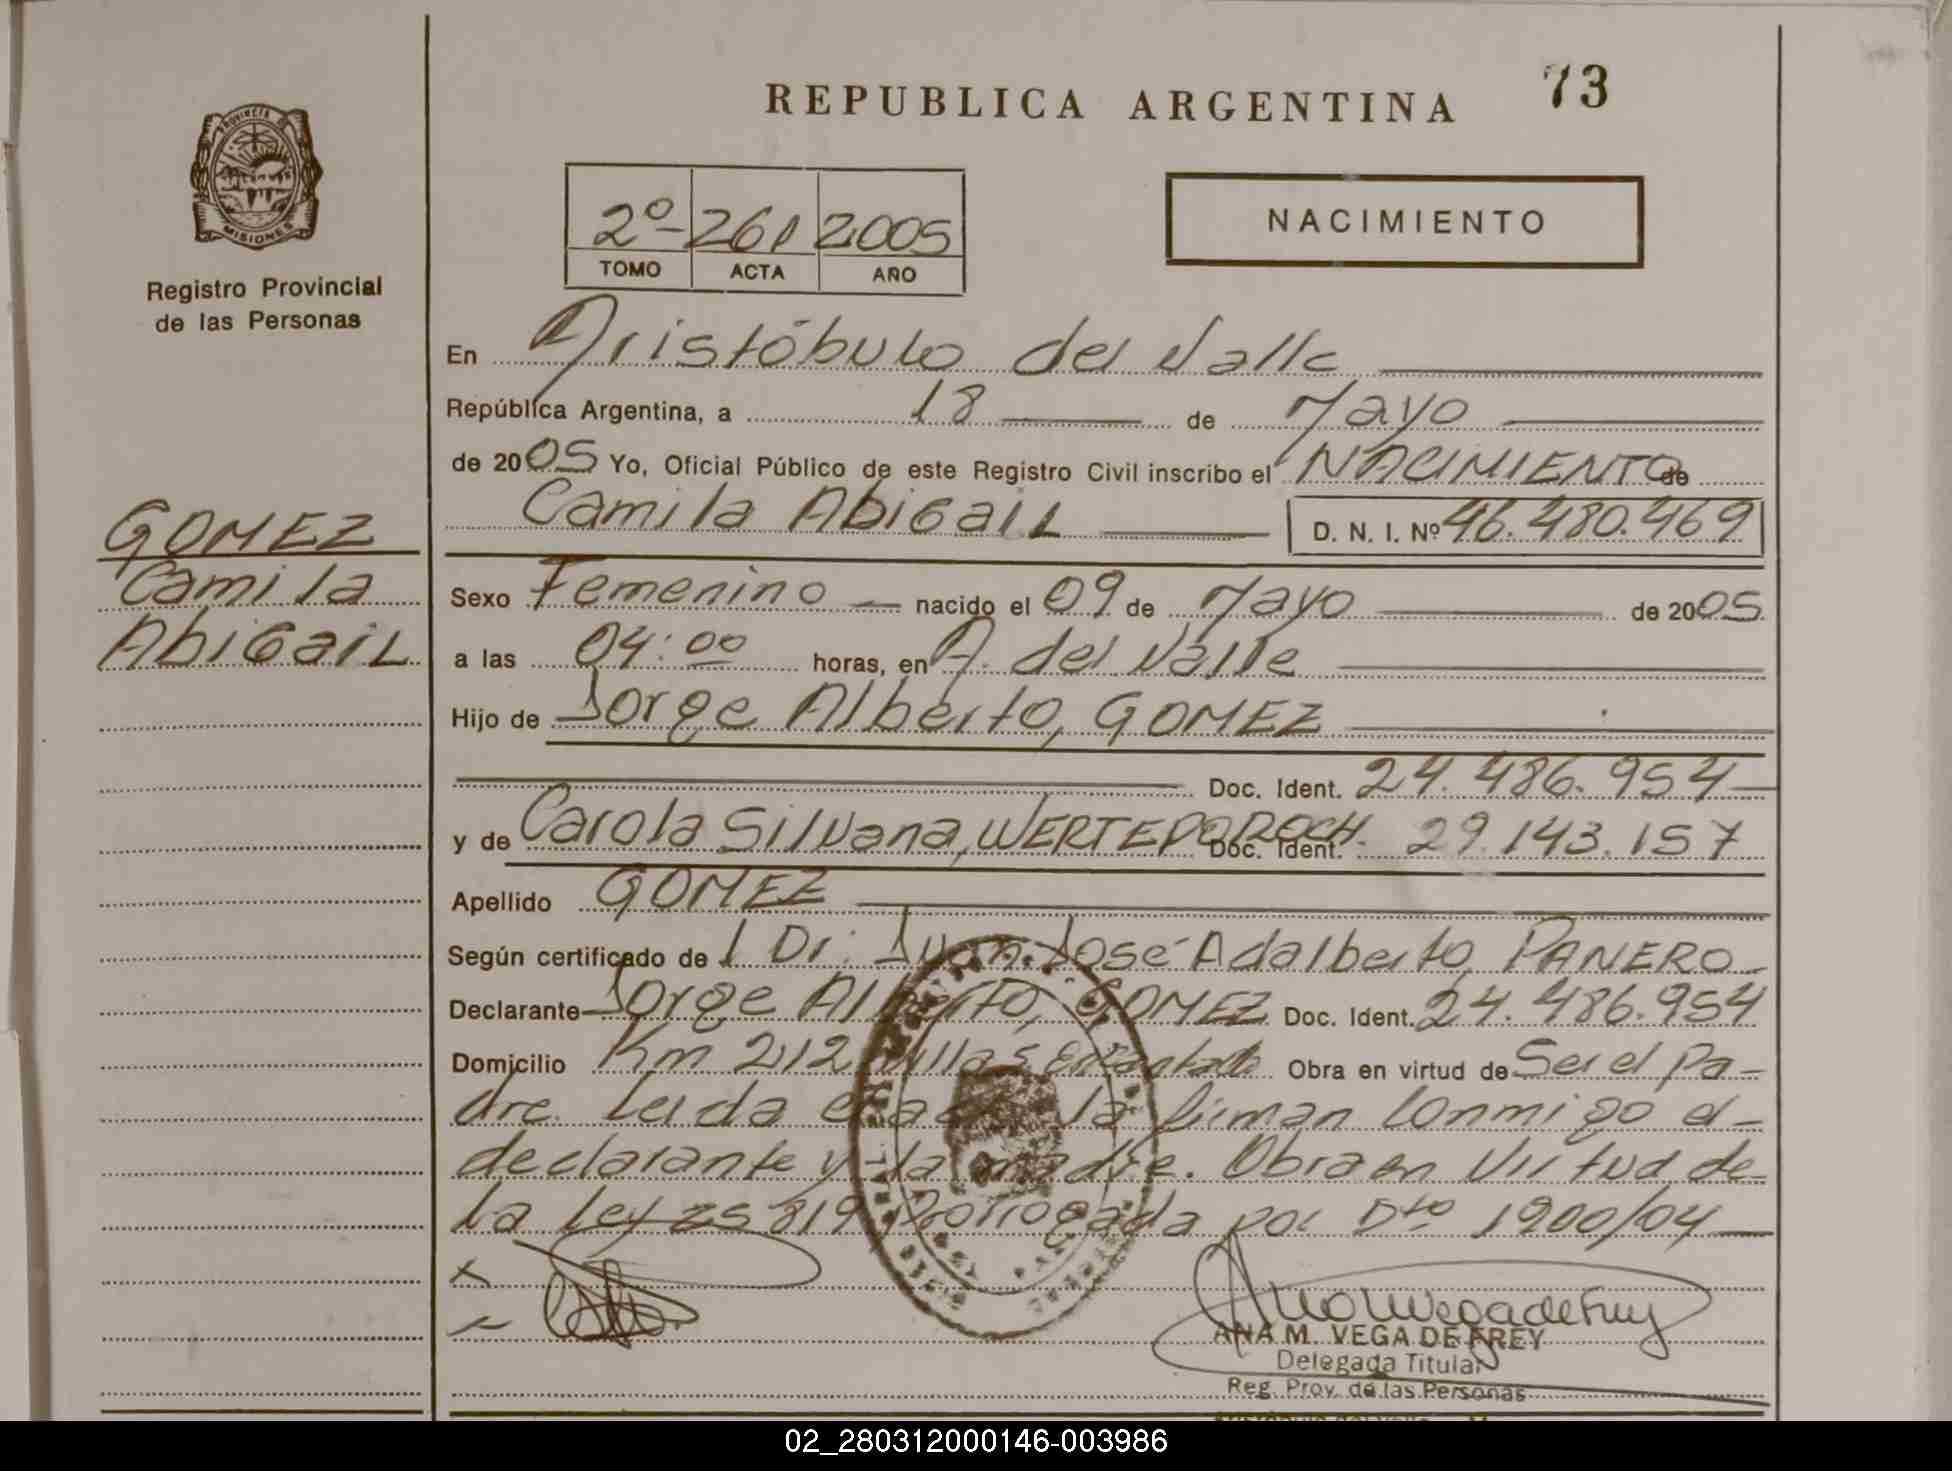 REPUBLICA ARGENTINA 73
PROVINCIA DE
MISIONES
Registro Provincial
de las Personas
2º 261 2005
TOMO ACTA AÑO
NACIMIENTO
En Aristóbulo del Valle
República Argentina, a 18 de Mayo
de 2005 Yo, Oficial Público de este Registro Civil inscribo el NACIMIENTO de
Camila Abigail D. N. I. Nº 46.480.469
GOMEZ
Camila
Abigail
Sexo Femenino nacido el 09 de Mayo de 2005
a las 04:00 horas, en A. del Valle
Hijo de Jorge Alberto, GOMEZ
Doc. Ident. 24.486.954
y de Carola Silvana, WERTEPOROCH Doc. Ident. 29.143.157
Apellido GOMEZ
Según certificado de l Dr: Juan José Adalberto, PANERO
Declarante Jorge Alberto, GOMEZ Doc. Ident. 24.486.954
Domicilio Km 212 Obra en virtud de Ser el Pa-
dre. Leida el la firman Conmigo el
declarante y la madre. Obra en Virtud de
la Ley 25 819 Prorrogada por Dto 1900/04
ANA M. VEGA DE FREY
Delegada Titular
Reg. Prov. de las Personas
02_280312000146-003986